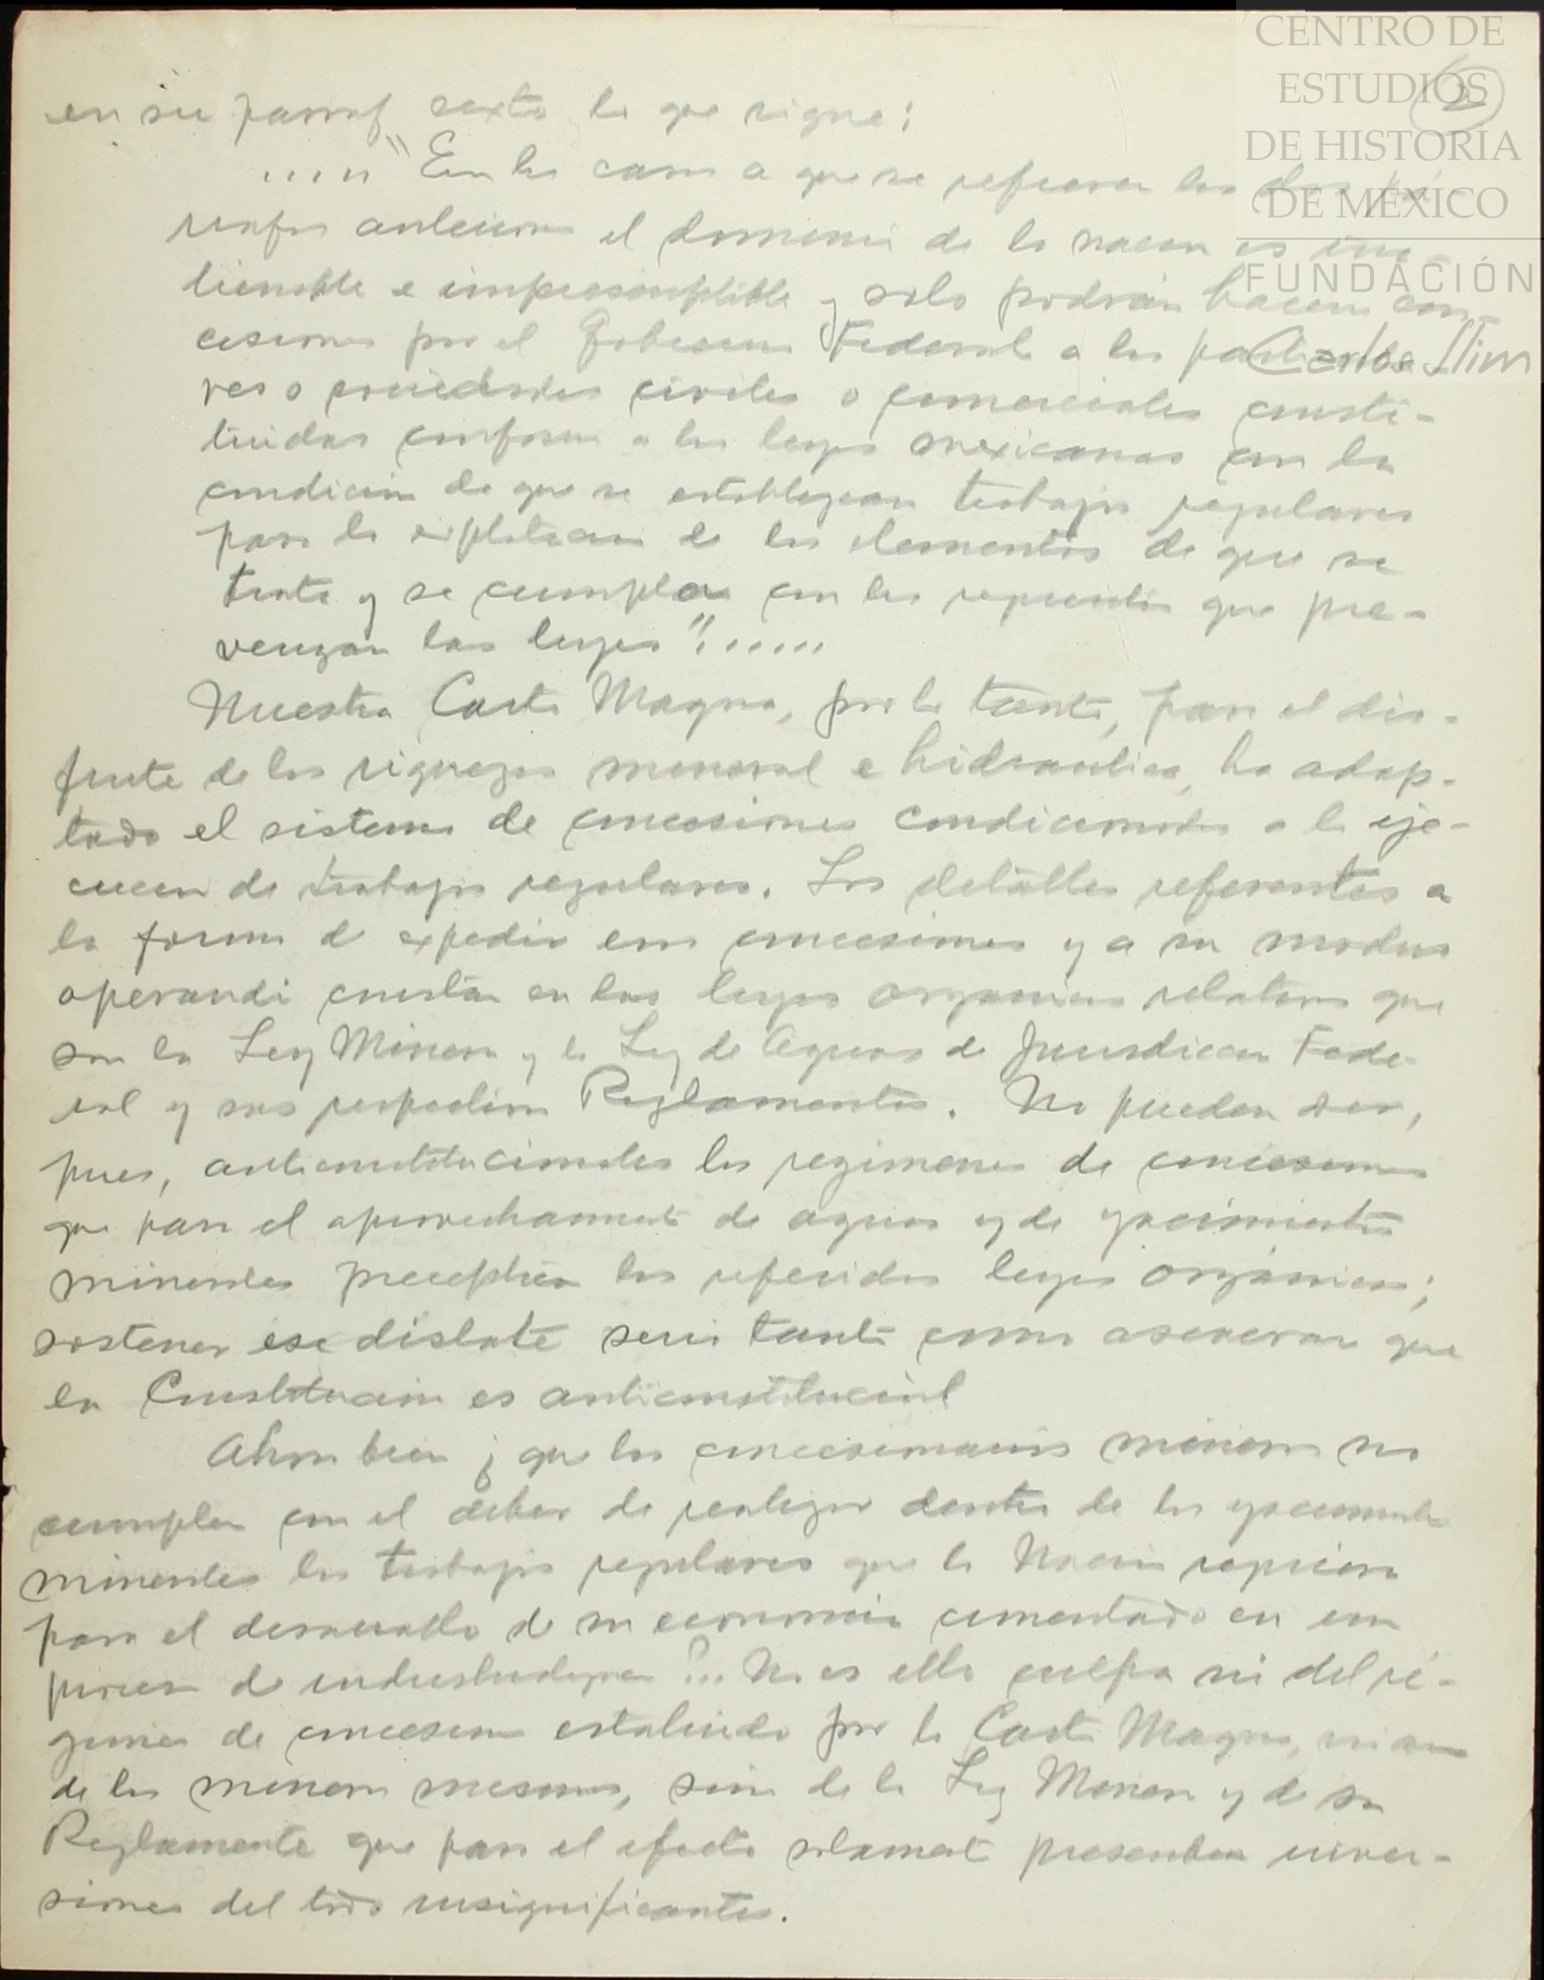 CENTRO DE
ESTUDIOS
DE HISTORIA
DE MÉXICO
FUNDACIÓN
Carlos Slim
2
en su parraf sexto lo que sigue:
....." En los casos a que se refieren los dos pá-
rrafos anteriores el dominio de la nacion es ina-
lienable e imprescriptible y solo podrán hacerse con-
cesiones por el Gobierno Federal a los particula-
res o sociedades civiles o comerciales consti-
tuidas conforme a las leyes mexicanas con la
condición de que se establezcan trabajos regulares
para la explotacion de los elementos de que se
trate y se cumpla con los requisitos que pre-
vengan las leyes"......
Nuestra Carta Magna, por lo tanto, para el dis-
frute de las riquezas mineral e hidraulica, ha adop-
tado el sistema de concesiones condicionadas a la eje-
cucion de trabajos regulares. Los detalles referentes a
la forma de expedir esas concesiones y a su modus
operandi constan en las leyes organicas relativas que
son la Ley Minera y la Ley de Aguas de Jurisdiccion Fede-
ral y sus respectivos Reglamentos. No pueden ser,
pues, anticonstitucionales los regimenes de concesiones
que para el aprovechamiento de aguas y de yacimientos
minerales preceptúan las referidas leyes orgánicas;
sostener ese dislate seria tanto como aseverar que
la Constitución es anticonstitucional
Ahora bien ¿ que los concesionarios mineros no
cumplen con el deber de realizar dentro de los yacimientos
minerales los trabajos regulares que la Nación requiere
para el desarrollo de su economia cimentado en un
proceso de industrialización?... No es ello culpa ni del ré-
gimen de concesiones establecido por la Carta Magna, ni aun
de los mineros mismos, sino de la Ley Minera y de su
Reglamento que para el efecto solamente prescriben inver-
siones del todo insignificantes.